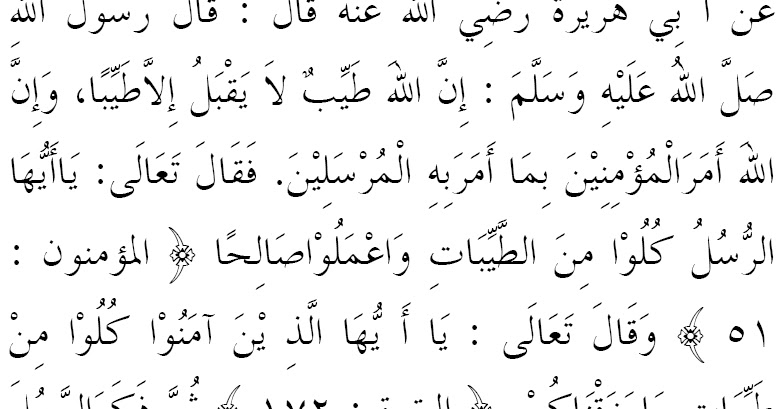 عن أ بي هريرة رضي الله عنه قال : قال رسول الله
صَلَّ اللهُ عَلَيْهِ وَسَلَّمَ : إِنَّ اللهَ طَيِّبٌ لاَ يَقْبَلُ إِلاَّطَيِّبًا، وَإِنَّ
اللهَ أَمَرَالْمُؤْمِنِيْنَ بِمَا أَمَرَبِهِ الْمُرْسَلِيْنَ. فَقَالَ تَعَالَى: يَاأَيُّهَا
الرُّسُلُ كُلُوْا مِنَ الطَّيِّبَاتِ وَاعْمَلُوْاصَالِحًا ﴿ المؤمنون :
٥١ ﴾ وَقَالَ تَعَالَى : يَا أَ يُّهَا الَّذِ يْنَ آمَنُوْا كُلُوْا مِنْ